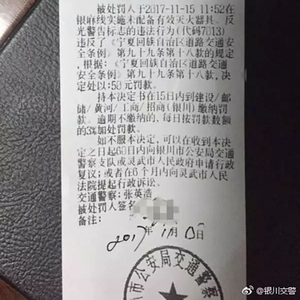 被处罚人于2017-11-15 11:52在
银麻线实施未配备有效灭火器具、反
光警告标志的违法行为(代码7013)
违反了《宁夏回族自治区道路交通安
全条例》第九十九第十八款的规定,
根据:《宁夏回族自治区道路交通
安全条例》第九十九第十八款,决定
处以:50元罚款。
持本决定书在15日内到建设/邮
储/黄河/工商/招商(银川)缴纳罚
款。逾期不缴纳的,每日按罚款数额
的3%加处罚款。
如不服本决定,可以在收到本决
定之日起60日内向银川市公安局交通
警察支队或灵武市人民政府申请行政
复议;或者在6个月内向灵武市人民
法院提起行政诉讼。
交通警察:张英浩
被处罚人签名
2017年11月15日
市公安局交通警察
@银川交警